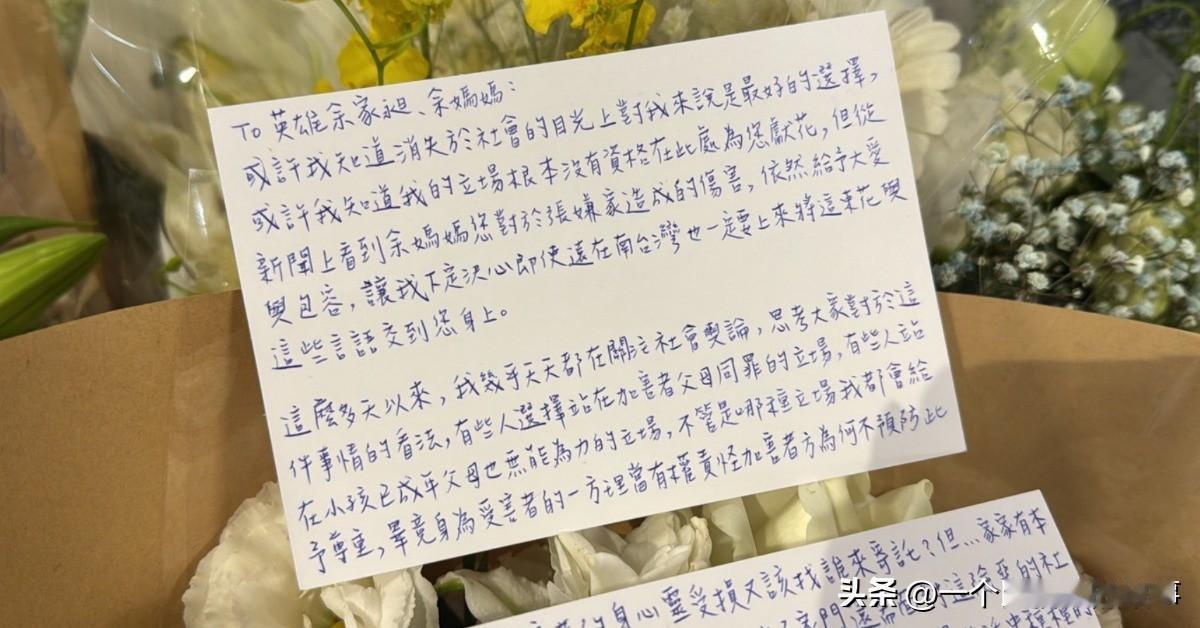 To 英雄余家昶、余媽媽：
或許我知道消失於社會的目光上對我來說是最好的選擇，
或許我知道我的立場根本沒有資格在此處為您獻花，但從
新聞上看到余媽媽您對於張嫌家造成的傷害，依然給予大愛
與包容，讓我下定決心即使遠在南台灣也一定要上來將這束花與
這些言語交到您身上。
這麼多天以來，我幾乎天天都在關注社會輿論，思考大家對於這
件事情的看法，有些人選擇站在加害者父母同罪的立場，有些人站
在小孩已成年父母也無能為力的立場，不管是哪種立場我都會給
予尊重，畢竟身為受害者的一方理當有權責怪加害者方為何不預防此
身心靈受損又該找誰來寄託？但…家家有本
這
的社
头条 @一个